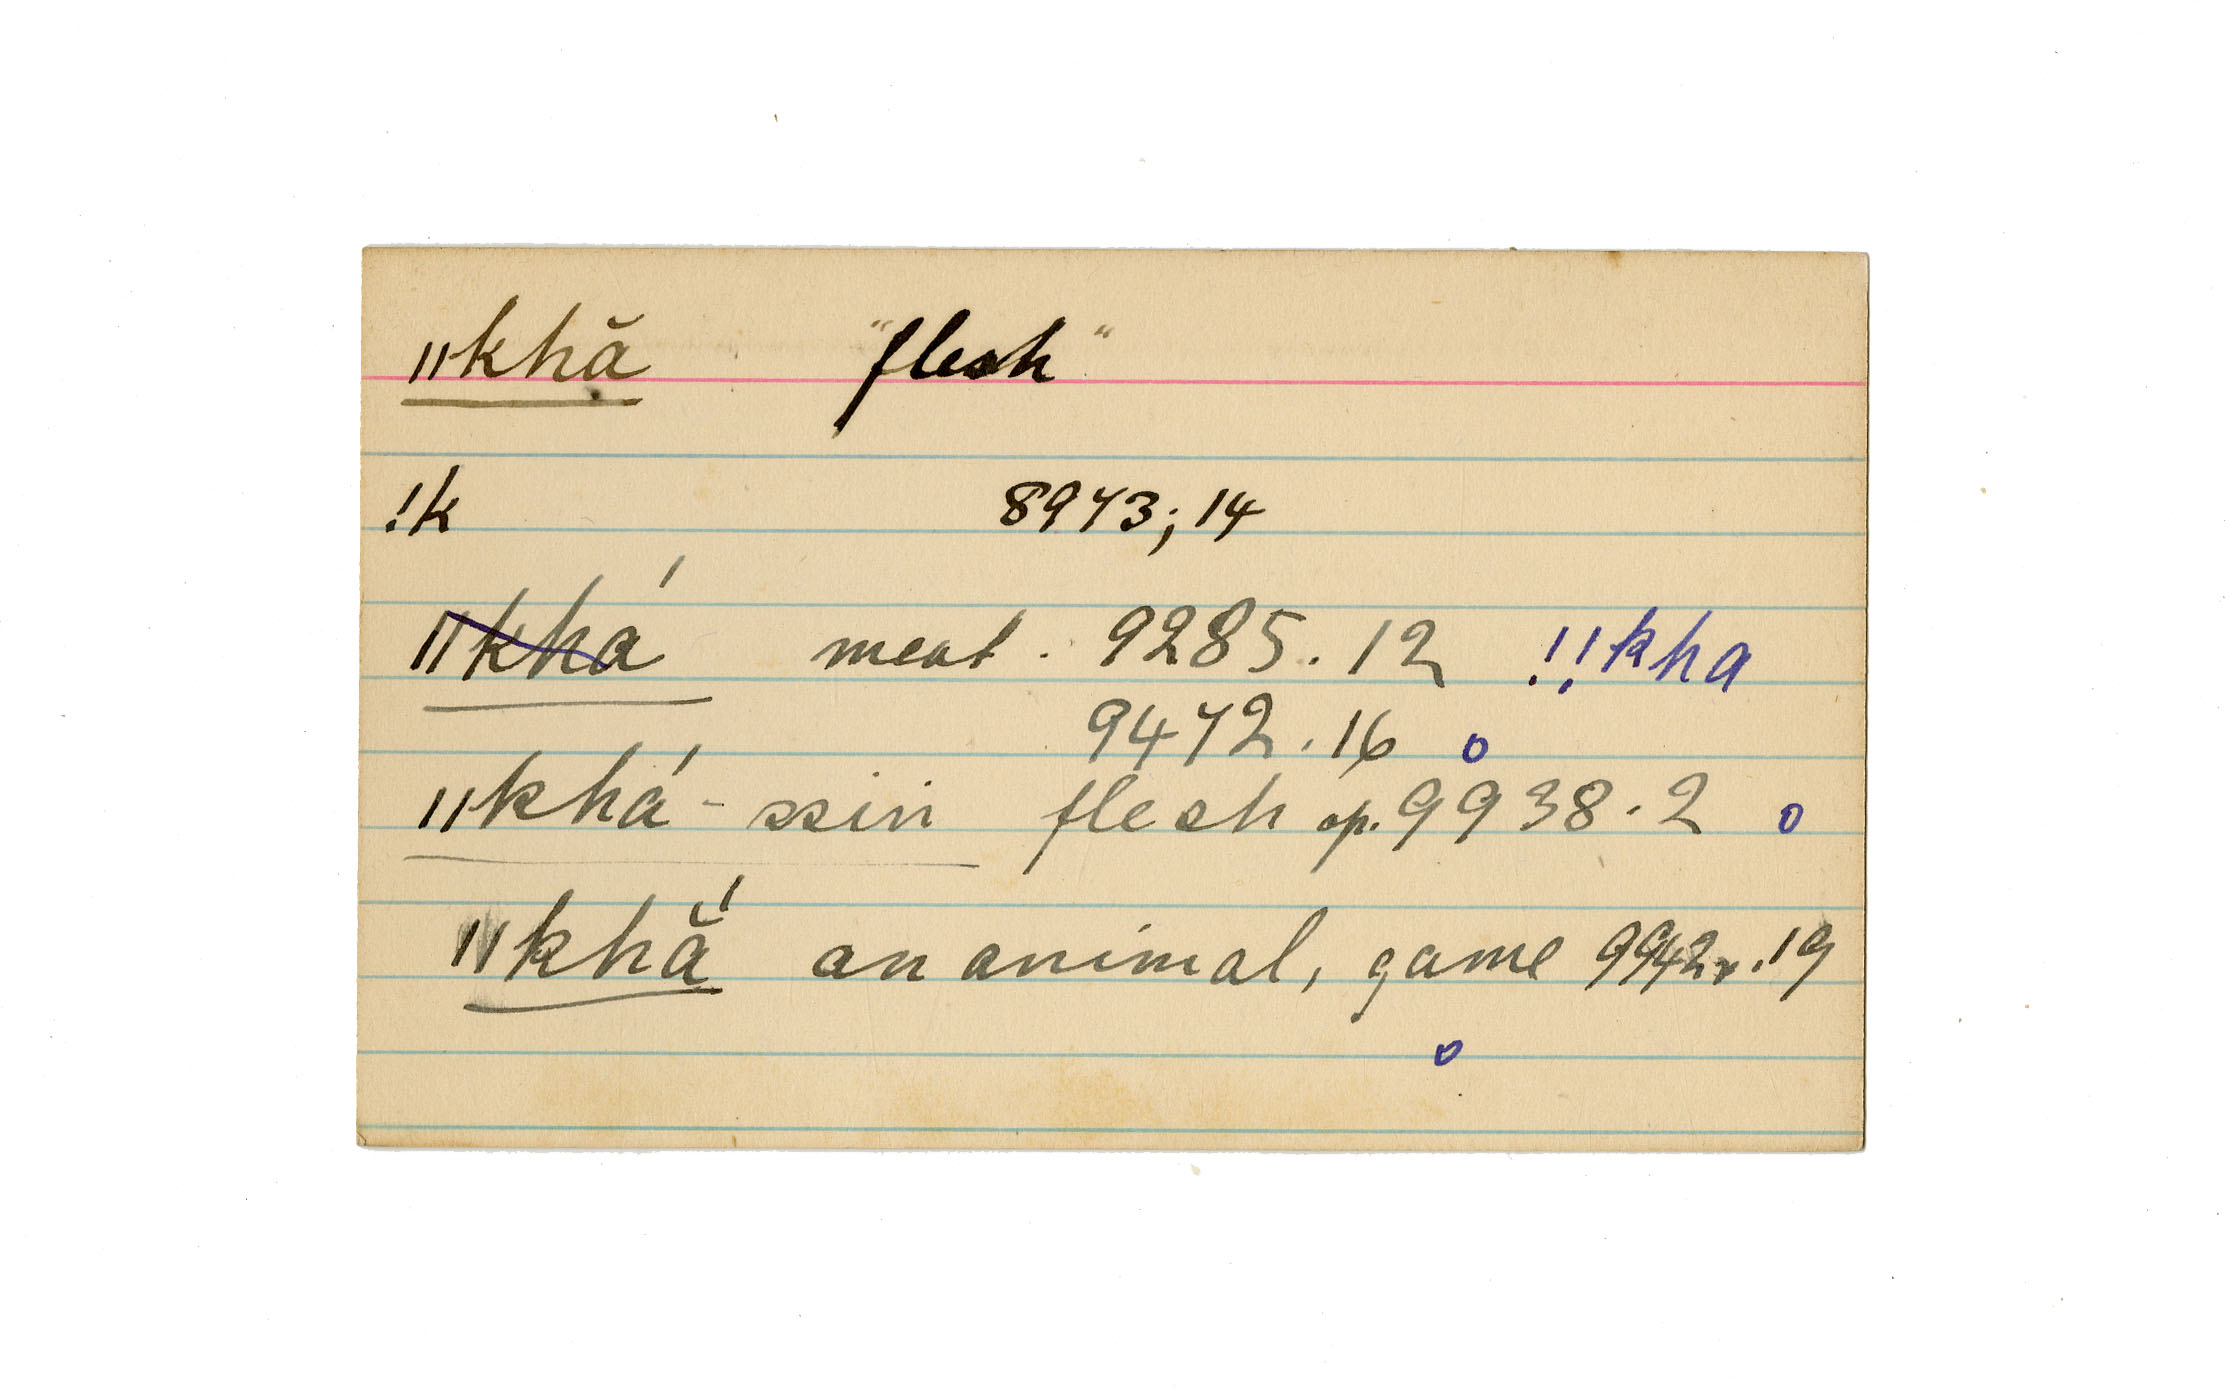 ǁkhă "flesh"
!k 8973; 14
ǁkhá meat. 9285. 12 !!kha
9472. 16 o
ǁkhá-ssin flesh op. 9938. 2 o
ǁkhắ an animal, game 9942v. 19
o